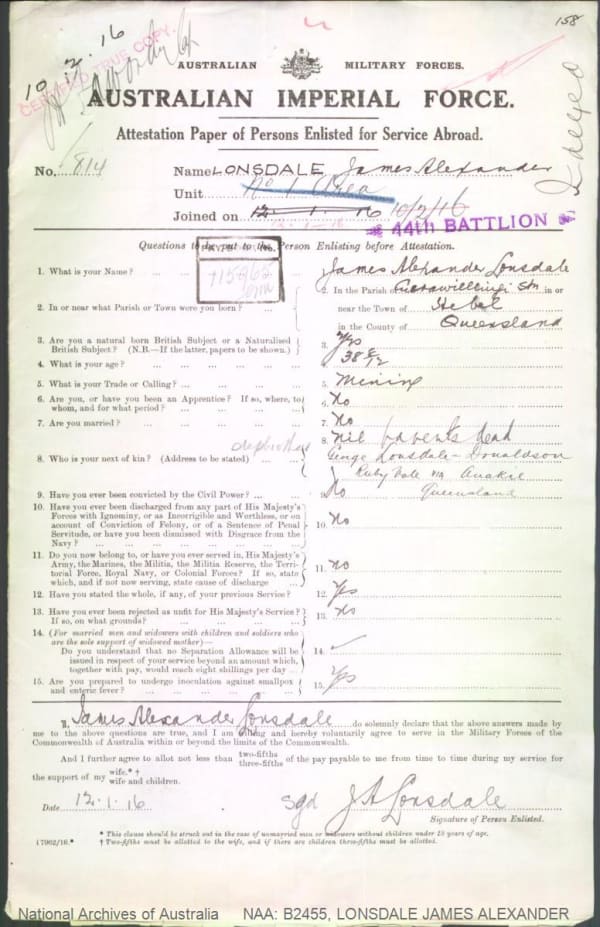 158
10.2.16
CERTIFIED TRUE COPY
AUSTRALIAN MILITARY FORCES.
AUSTRALIAN IMPERIAL FORCE.
Attestation Paper of Persons Enlisted for Service Abroad.
No. 814 Name LONSDALE James Alexander
Unit No 1 Area
Joined on 12. 1. 16 10/2/16
44TH BATTLION
Questions to be put to the Person Enlisting before Attestation.
1. What is your Name? ... 1. James Alexander Lonsdale
2. In or near what Parish or Town were you born? ... 2. In the Parish of Stn in or
near the Town of Hebel
in the County of Queensland
3. Are you a natural born British Subject or a Naturalised British Subject? (N.B.—If the latter, papers to be shown.) 3. Yes
4. What is your age? ... 4. 38 8/12
5. What is your Trade or Calling? ... 5. Mining
6. Are you, or have you been an Apprentice? If so, where, to whom, and for what period? ... 6. No
7. Are you married? ... 7. No
8. Who is your next of kin? (Address to be stated) ... 8. nil parents dead
George Lonsdale-Donaldson
Ruby Vale via Anakie
Queensland
9. Have you ever been convicted by the Civil Power? ... 9. No
10. Have you ever been discharged from any part of His Majesty's
Forces with Ignominy, or as Incorrigible and Worthless, or on
account of Conviction of Felony, or of a Sentence of Penal
Servitude, or have you been dismissed with Disgrace from the
Navy? ... 10. No
11. Do you now belong to, or have you ever served in, His Majesty's
Army, the Marines, the Militia, the Militia Reserve, the Terri-
torial Force, Royal Navy, or Colonial Forces? If so, state
which, and if not now serving, state cause of discharge ... 11. no
12. Have you stated the whole, if any, of your previous Service? 12. Yes
13. Have you ever been rejected as unfit for His Majesty's Service?
If so, on what grounds? ... 13. No
14. (For married men and widowers with children and soldiers who
are the sole support of widowed mother)—
Do you understand that no Separation Allowance will be
issued in respect of your service beyond an amount which,
together with pay, would reach eight shillings per day ... 14. ✓
15. Are you prepared to undergo inoculation against smallpox
and enteric fever? ... 15. Yes
I, James Alexander Lonsdale do solemnly declare that the above answers made by
me to the above questions are true, and I am willing and hereby voluntarily agree to serve in the Military Forces of the
Commonwealth of Australia within or beyond the limits of the Commonwealth.
And I further agree to allot not less than two-fifths three-fifths of the pay payable to me from time to time during my service for
the support of my wife.* † wife and children.
Date 12.1.16 Sgd J A Lonsdale
Signature of Person Enlisted.
17962/16.* * This clause should be struck out in the case of unmarried men or widowers without children under 18 years of age.
† Two-fifths must be allotted to the wife, and if there are children three-fifths must be allotted.
National Archives of Australia NAA: B2455, LONSDALE JAMES ALEXANDER